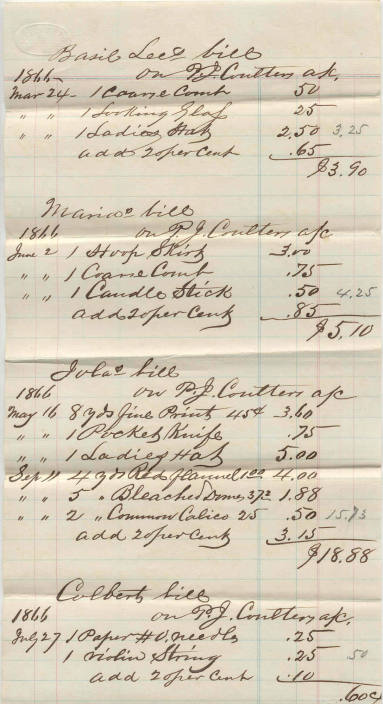 Basil Lees bill
1866 on P.J. Coulters a/c.
Mar 24 1 Coarse Comb 50
" " 1 Looking Glass 25
" " 1 Ladies Hat 2.50 3.25
add 20 per Cent .65
$3.90
Marias bill
1866 on P.J. Coulters a/c
June 2 1 Hoop Skirt 3.00
" " 1 Coarse Comb .75
" " 1 Candle Stick .50 4.25
add 20 per Cent .85
$5.10
bill
1866 on P.J. Coulters a/c
May 16 8 yds Fine Print 45¢ 3.60
" " 1 Pocket Knife .75
" " 1 Ladies Hat 5.00
Sep 11 4 yds Red Flannel 1.00 4.00
" " 5 " Bleached Domes 37½ 1.88
" " 2 " Common Calico 25 .50 15.73
add 20 per Cent 3.15
$18.88
Colberts bill
1866 on P.J. Coulters a/c.
July 27 1 Paper needles .25
1 Violin String .25 .50
add 20 per Cent .10
.60¢